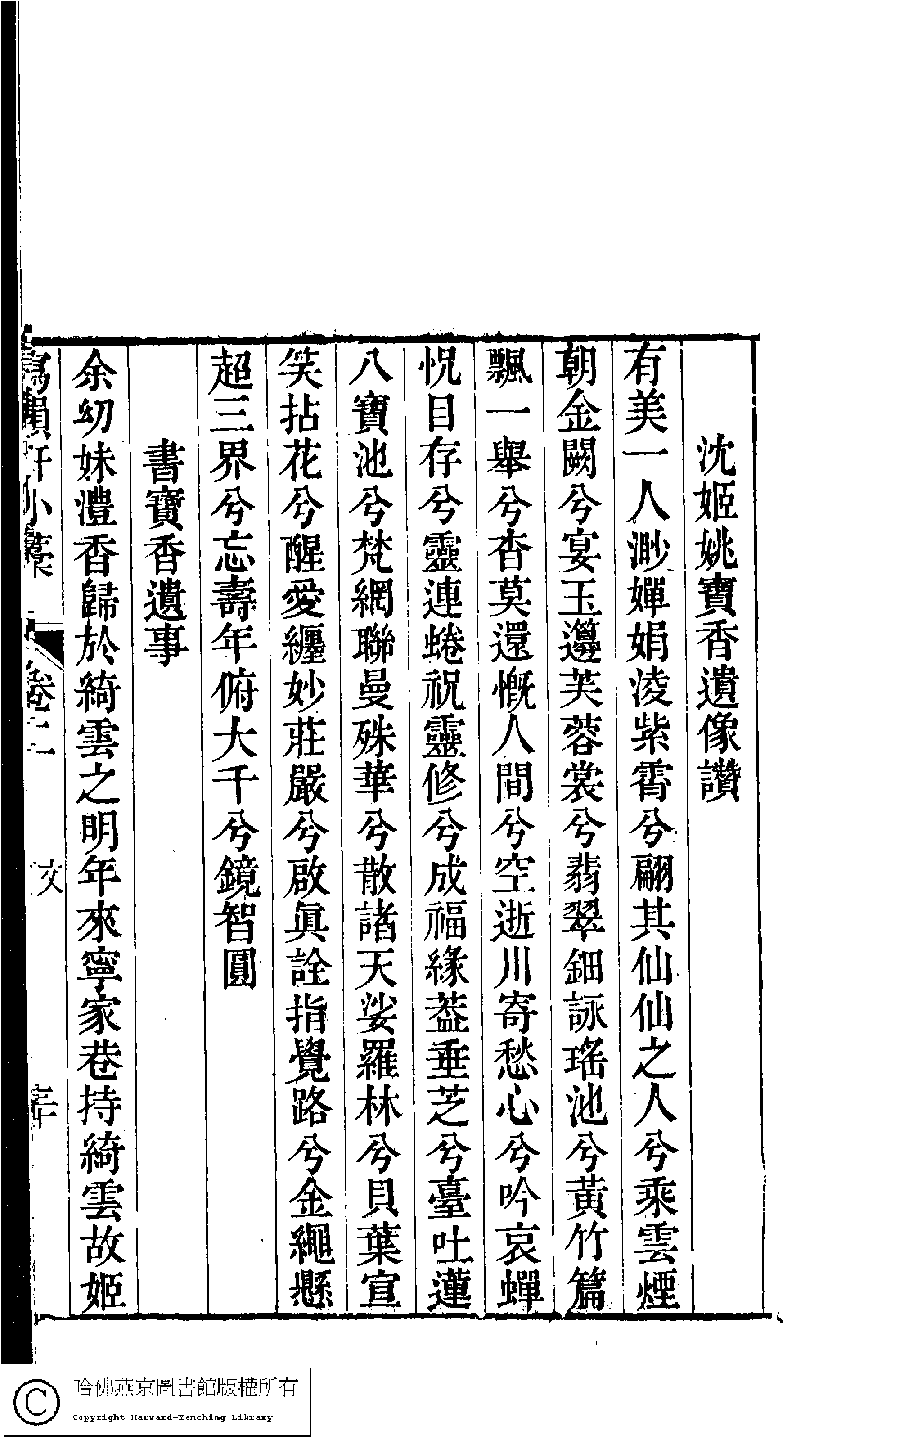 沈姬姚寶香遺像讚
有美一人渺嬋娟淩紫霄兮翩其仙仙之人兮乘雲煙
朝金闕兮宴玉籩芙蓉裳兮翡翠鈿詠瑤池兮黃竹篇
飄一舉兮杳莫還慨人間兮空逝川寄愁心兮吟哀蟬
怳目存兮靈連蜷祝靈修兮成福緣葢垂芝兮臺吐蓮
八寶池兮梵網聯曼殊華兮散諸天娑羅林兮貝葉宣
笑拈花兮醒愛纏妙莊嚴兮啟眞詮指覺路兮金繩懸
超三界兮忘壽年俯大千兮鏡智圓
書寶香遺事
余幼妹澧香歸於綺雲之明年來寧家巷持綺雲故姬
寫韻軒小藁 卷二 文
哈佛燕京圖書館版權所有
Copyright Harvard-Yenching Library